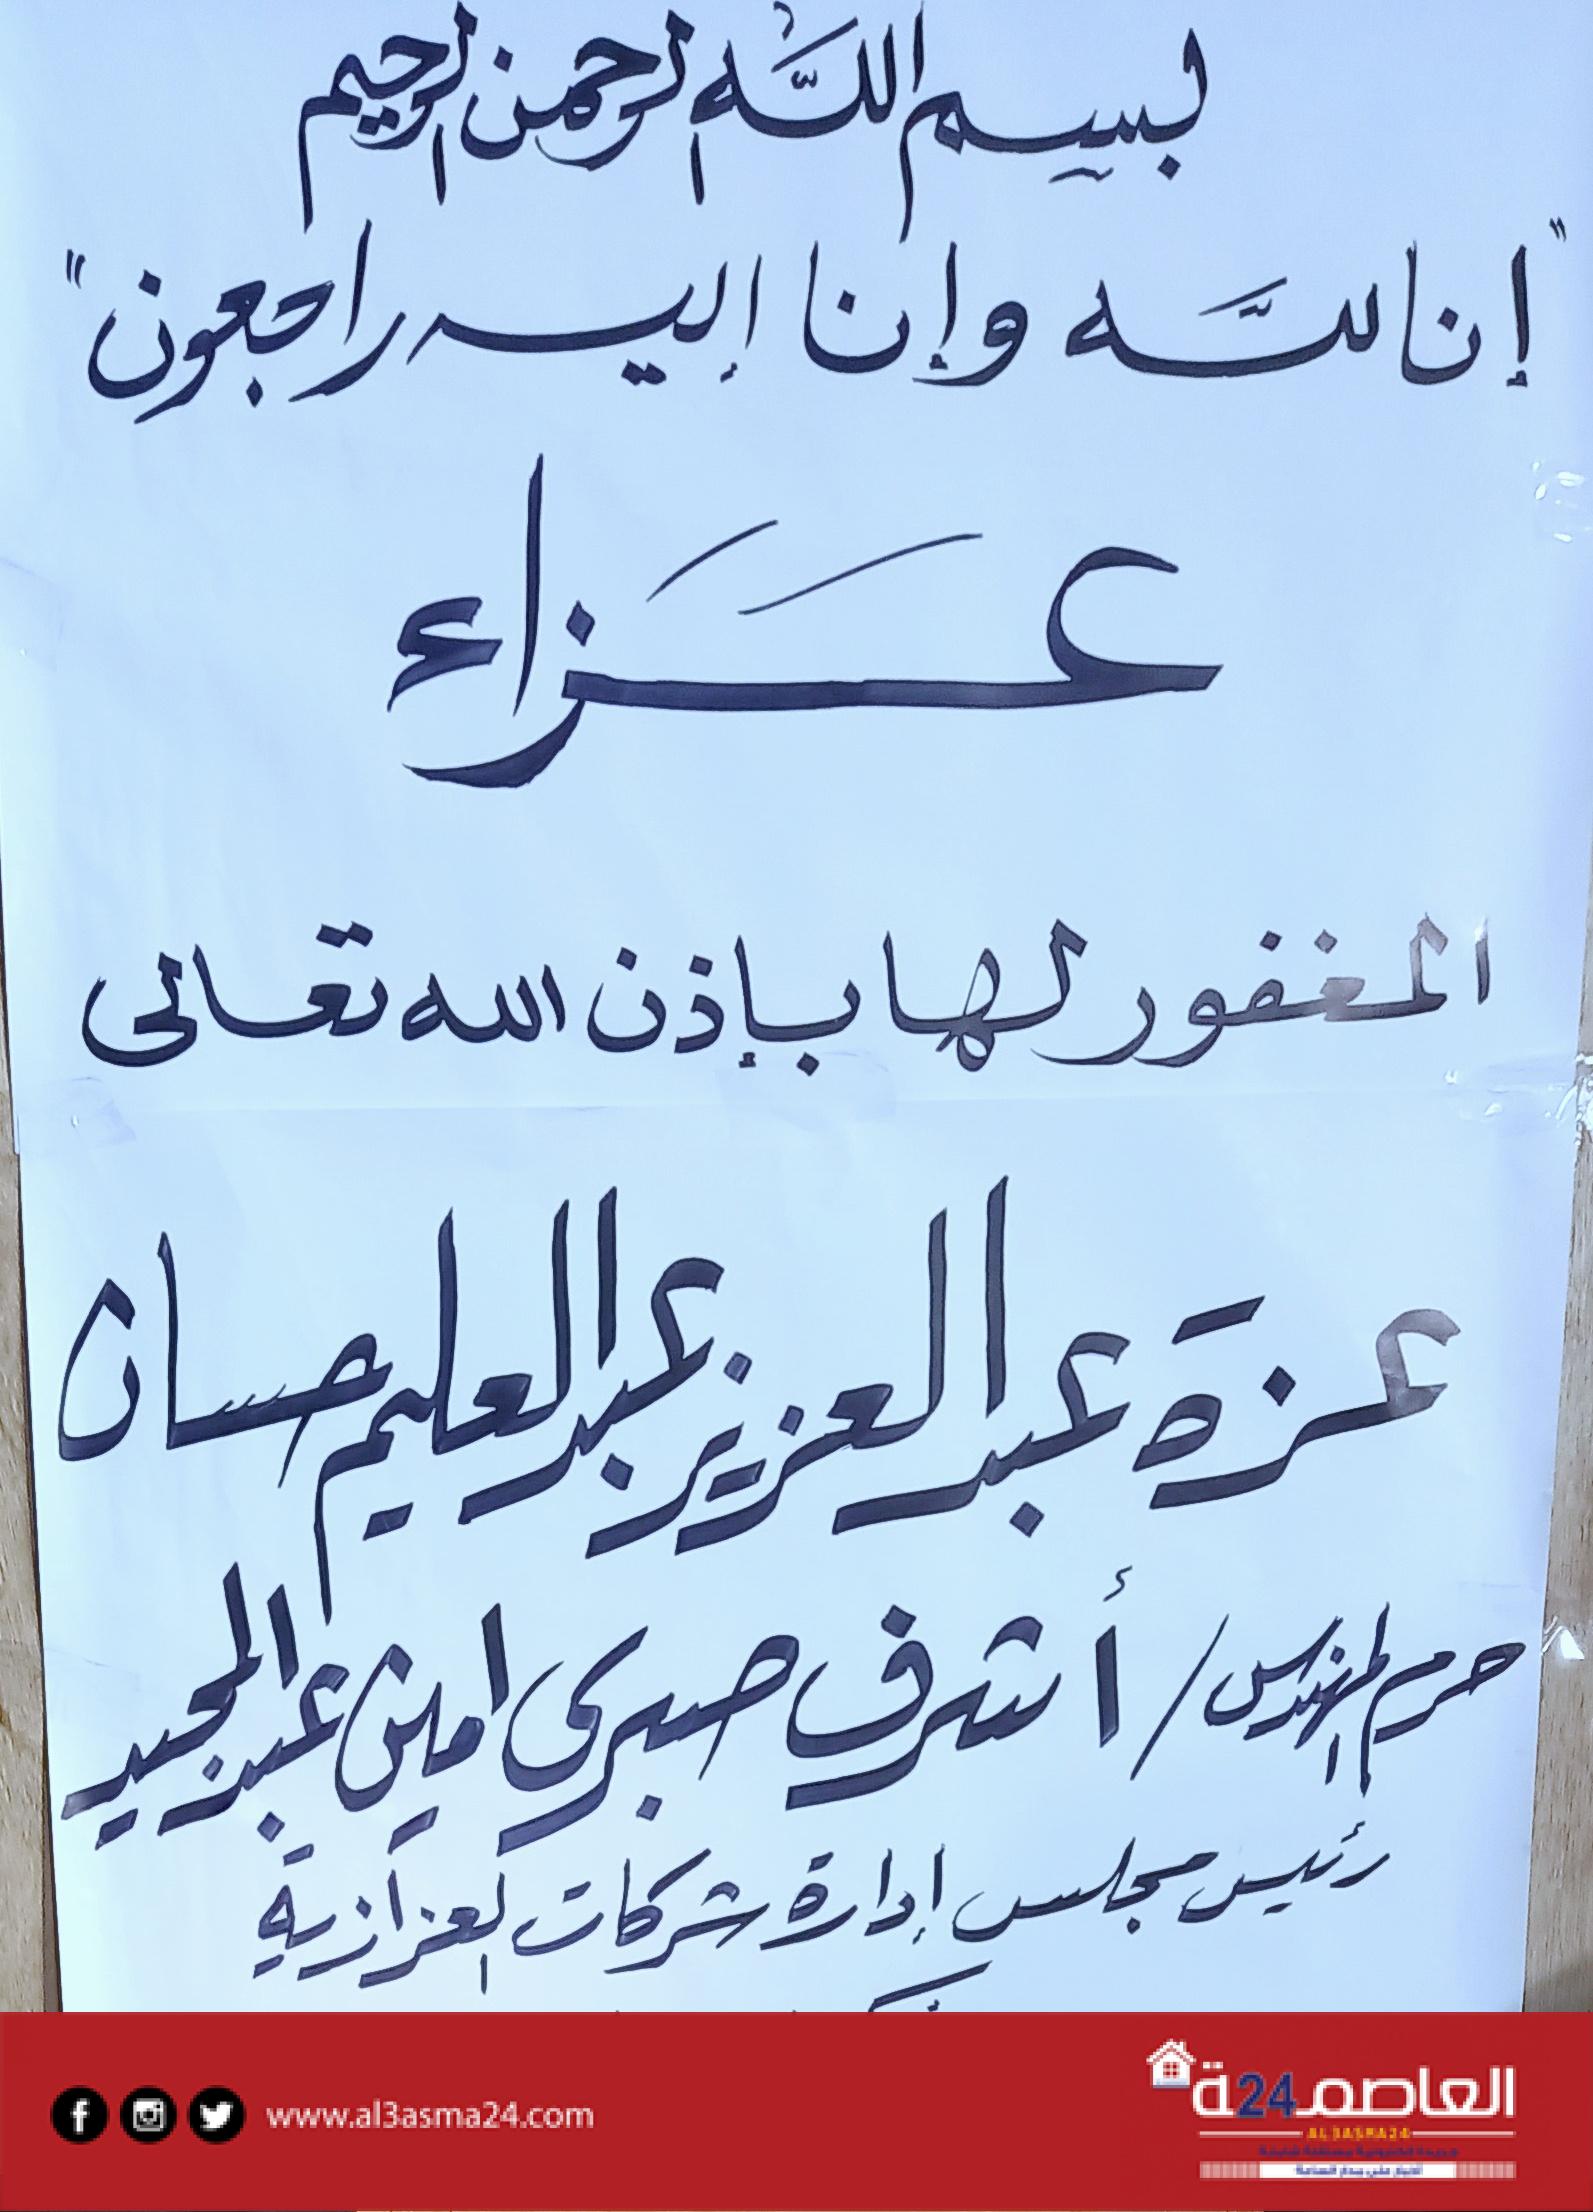 بسم الله الرحمن الرحيم
"إنا لله وإنا إليه راجعون"
عزاء
المغفور لها بإذن الله تعالى
عزة عبد العزيز عبد العليم حسان
حرم المهندس / أشرف صبري امين عبد المجيد
رئيس مجلس إدارة شركات العزازية
www.al3asma24.com
العاصمة24
AL3ASMA24
جريدة إلكترونية مستقلة شاملة